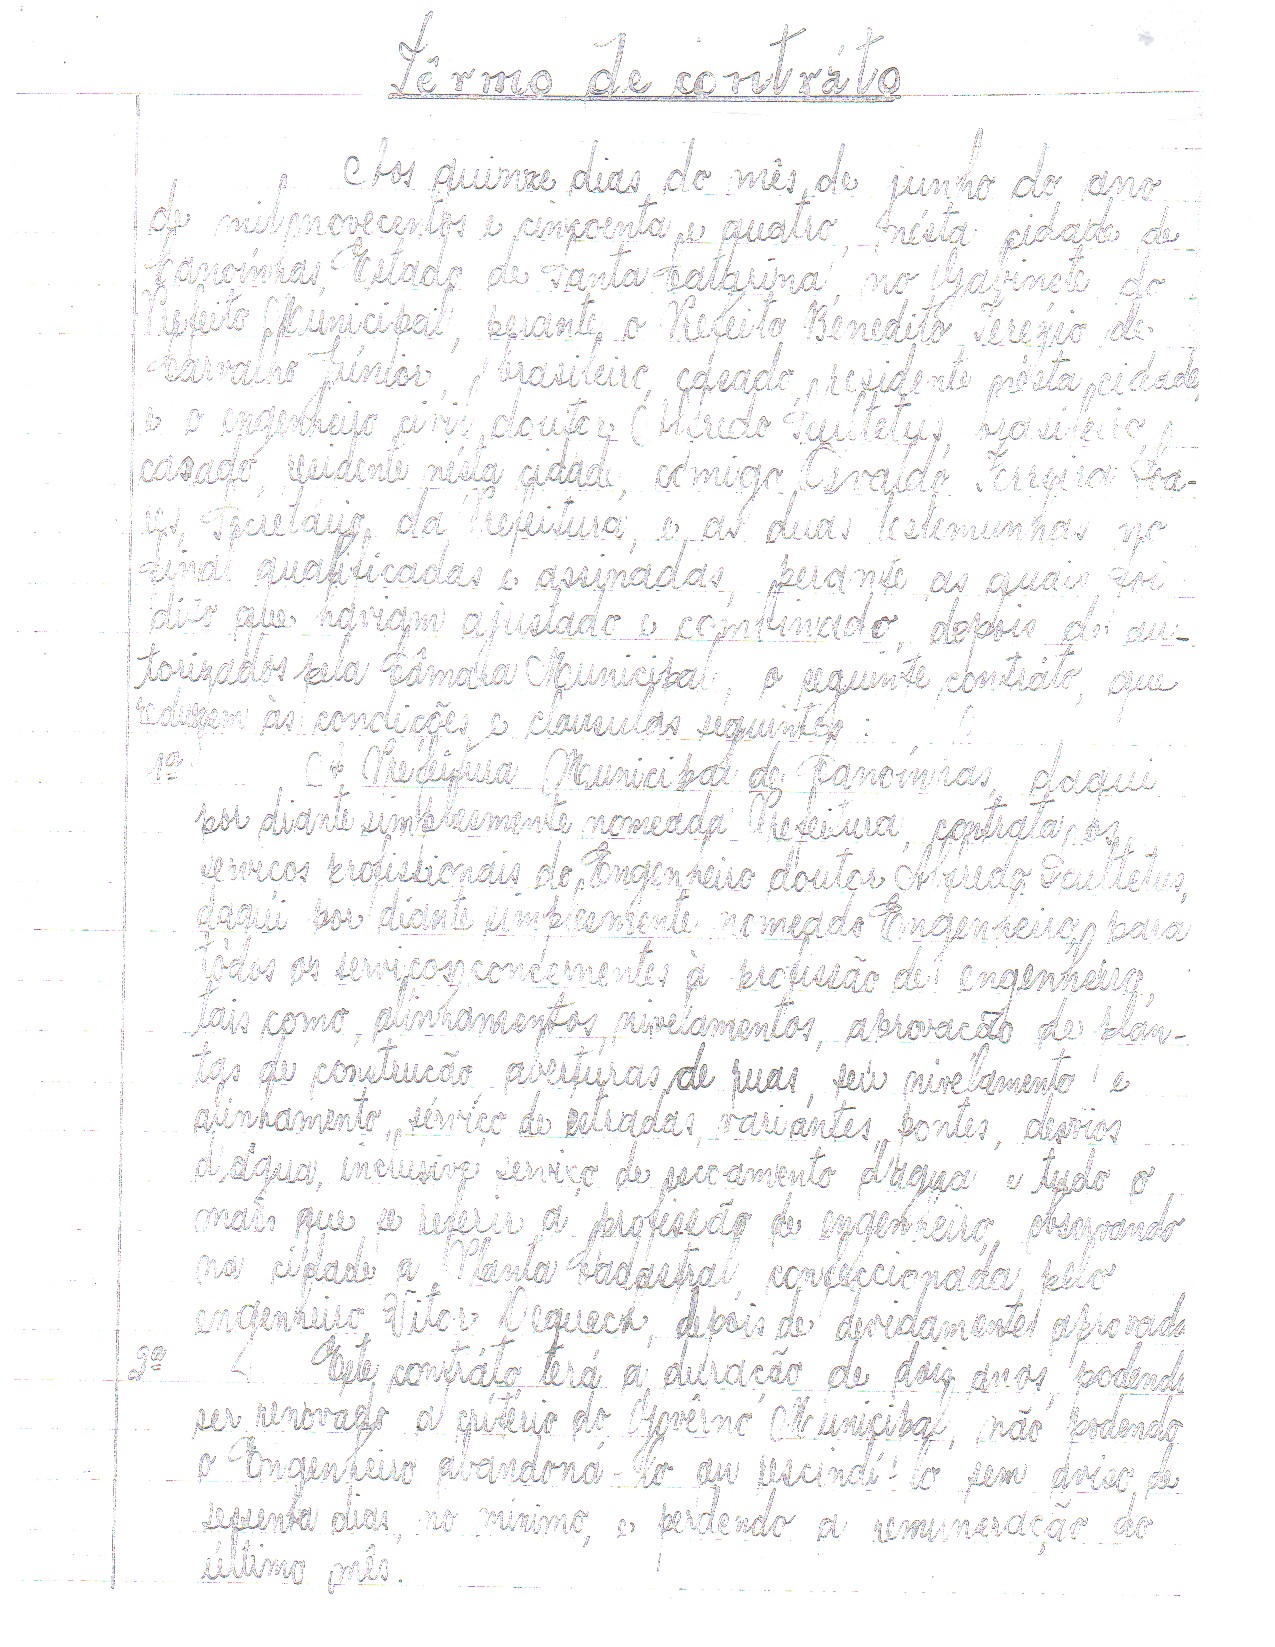 Têrmo de contráto
Aos quinze dias do mês de junho do ano
de mil novecentos e cincoenta e quatro, nésta cidade de
Canoínhas, Estado de Santa Catarina, no Gabinete do
Prefeito Municipal, perante o Prefeito Benedito Terézio de
Carvalho Júnior, brasileiro, casado, residente nésta cidade,
e o engenheiro civil doutor Alfredo Scultetus, brasileiro,
casado, residente nésta cidade, comigo Osvaldo Ferreira Soa-
res, Secretário da Prefeitura, e as duas testemunhas no
final qualificadas e assinadas, perante as quais foi
dito que haviam ajustado e combinado, depois de au-
torizados pela Câmara Municipal, o seguinte contráto, que
reduzem às condições e clausulas seguintes:
1ª A Prefeitura Municipal de Canoínhas, daqui
por diante simplesmente nomeada Prefeitura, contrata os
serviços profissionais do Engenheiro doutor Alfredo Scultetus,
daqui por diante simplesmente nomeado Engenheiro, para
todos os serviços concernentes à profissão de engenheiro,
tais como, alinhamentos, nivelamentos, aprovação de plan-
tas de construção, aberturas de ruas, seu nivelamento e
alinhamento, serviço de estradas, variantes, pontes, desvios
d'água, inclusive serviço de seccamento d'água e tudo o
mais que se referir a profissão de engenheiro, observando
na cidade a Planta Cadastral, confeccionada pelo
engenheiro Vitor Dequech, depois de devidamente aprovada
2ª Este contráto terá a duração de dois anos, podendo
ser renovado a critério do Govêrno Municipal, não podendo
o Engenheiro abandona-lo ou rescindí-lo sem aviso de
sessenta dias, no mínimo, e perdendo a remuneração do
último mês.